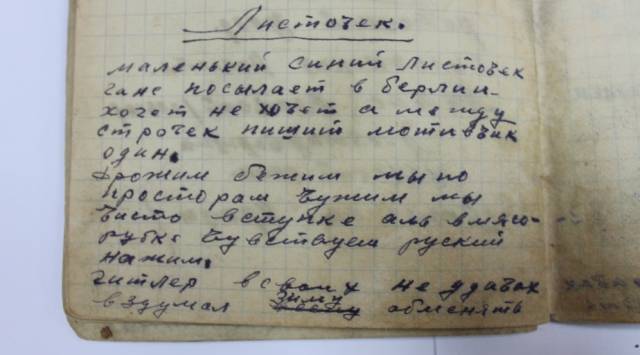 Листочек.
маленький синий листочек
ганс посылает в берлин-
хочет не хочет а между
строчек пищит мотивчик
один.
дрожим бежим мы по
просторам чужим мы
чисто в ступке аль в мясо-
рубке чувствуем руский
нажим.
гитлер в своих не удачах
вздумал зиму обменять